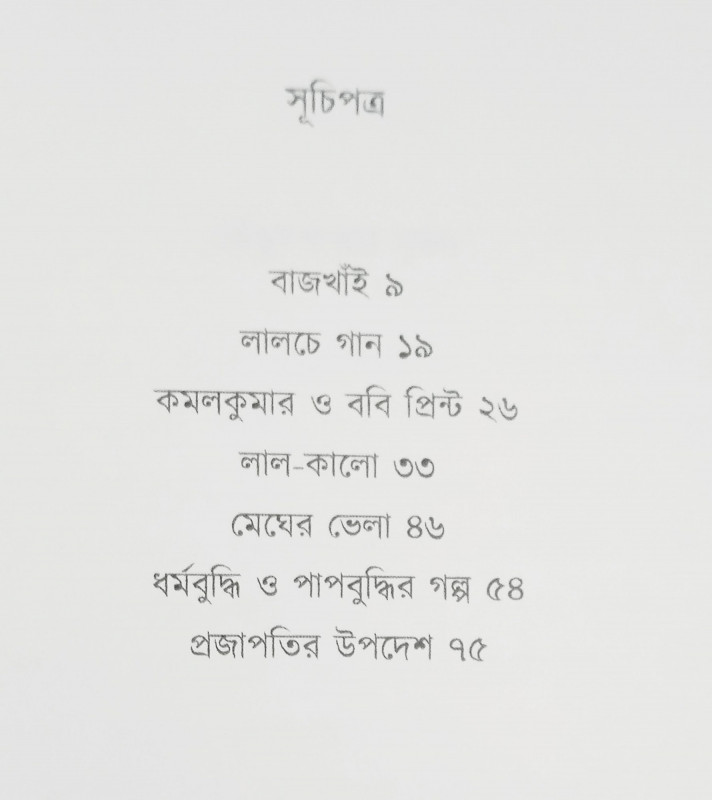 সূচিপত্র
বাজখাঁই ৯
লালচে গান ১৯
কমলকুমার ও ববি প্রিন্ট ২৬
লাল-কালো ৩৩
মেঘের ভেলা ৪৬
ধর্মবুদ্ধি ও পাপবুদ্ধির গল্প ৫৪
প্রজাপতির উপদেশ ৭৫